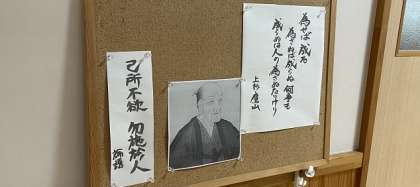 為せば 成る
為さねば成らぬ 何事も
成らぬは人の為さぬなりけり
上杉 鷹山
己所不欲 勿施於人
論語